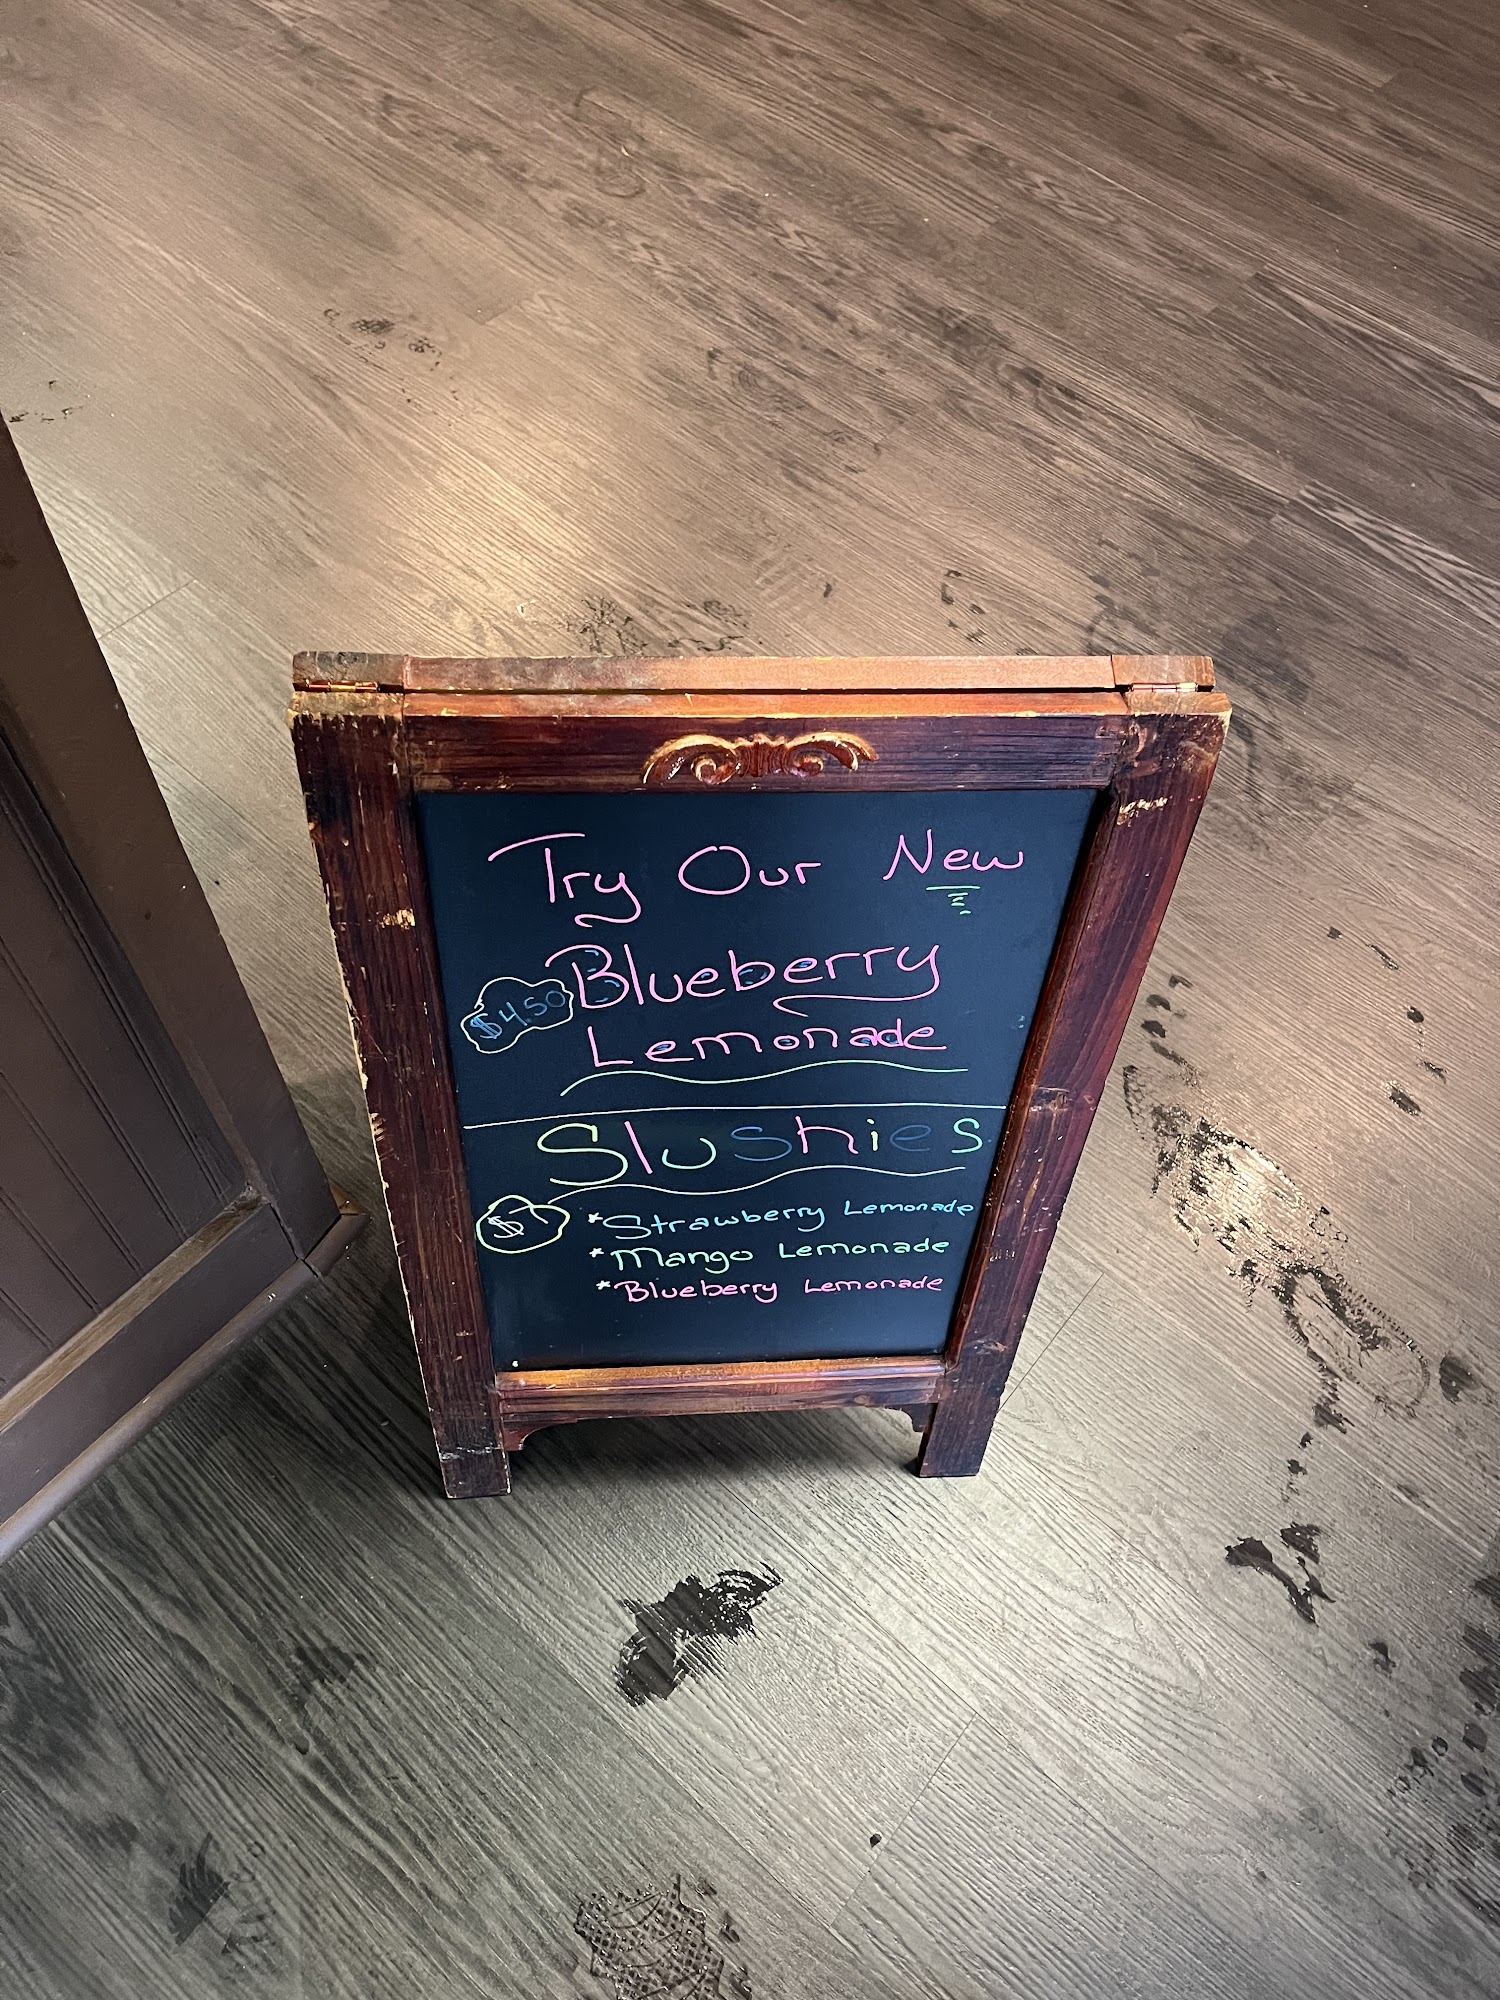 Try Our New
Blueberry
$4.50
Lemonade
Slushies
$7
*Strawberry Lemonade
*Mango Lemonade
*Blueberry Lemonade